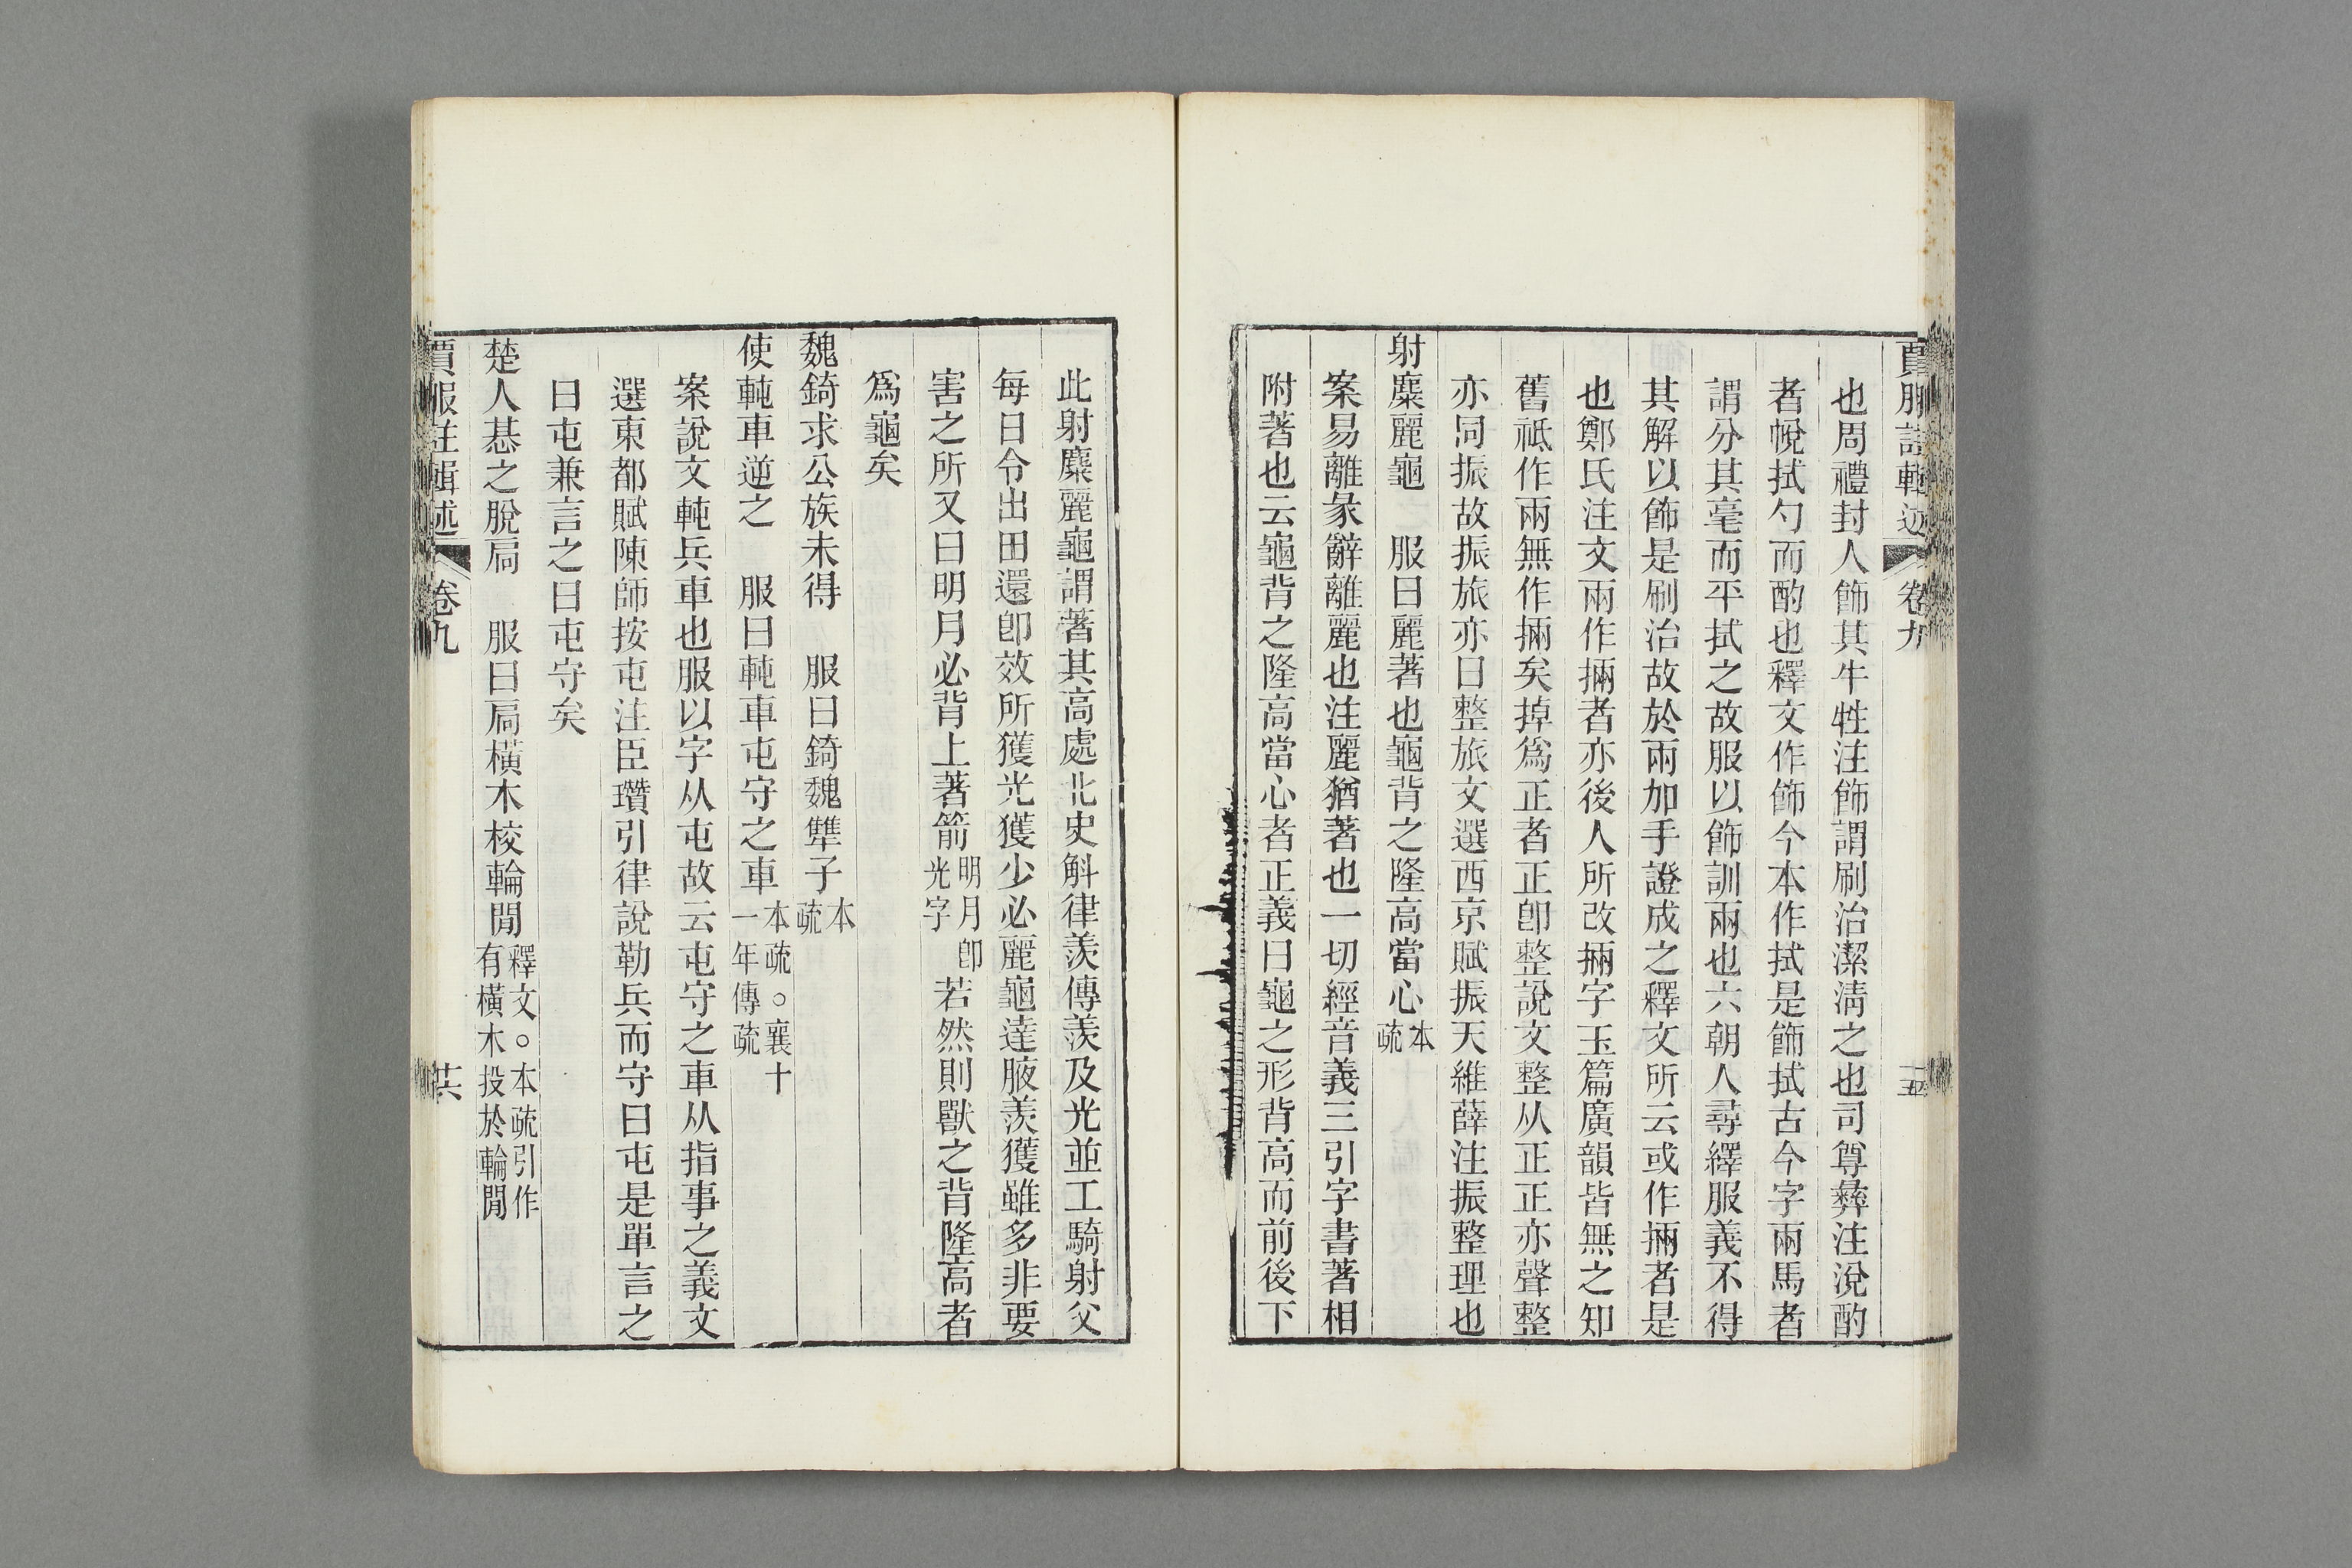 賈服註輯述 卷九 十五
也周禮封人飾其牛牲注飾謂刷治潔清之也司尊彝注涗酌
者帨拭勺而酌也釋文作飾今本作拭是飾拭古今字兩馬者
謂分其毫而平拭之故服以飾訓兩也六朝人尋繹服義不得
其解以飾是刷治故於兩加手證成之釋文所云或作掚者是
也鄭氏注文兩作掚者亦後人所改掚字玉篇廣韻皆無之知
舊祗作兩無作掚矣掉爲正者正卽整說文整从正正亦聲整
亦同振故振旅亦曰整旅文選西京賦振天維薛注振整理也
射麋麗龜 服曰麗著也龜背之隆高當心本疏
案易離彖辭離麗也注麗猶著也一切經音義三引字書著相
附著也云龜背之隆高當心者正義曰龜之形背高而前後下
此射麋麗龜謂著其高處北史斛律羡傳羡及光並工騎射父
每日令出田還卽效所獲光獲少必麗龜達腋羡獲雖多非要
害之所又曰明月必背上著箭明月卽光字若然則獸之背隆高者
爲龜矣
魏錡求公族未得 服曰錡魏犨子本疏
使軘車逆之 服曰軘車屯守之車本疏○襄十一年傳疏
案說文軘兵車也服以字从屯故云屯守之車从指事之義文
選東都賦陳師按屯注臣瓚引律說勒兵而守曰屯是單言之
曰屯兼言之曰屯守矣
楚人惎之脫扃 服曰扃橫木校輪閒釋文○本疏引作有橫木投於輪閒
賈服註輯述 卷九 十六